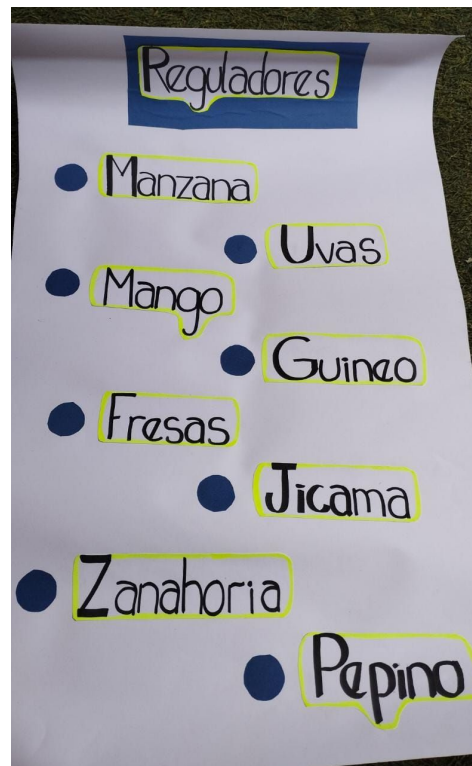 Reguladores
Manzana
Uvas
Mango
Guineo
Fresas
Jicama
Zanahoria
Pepino